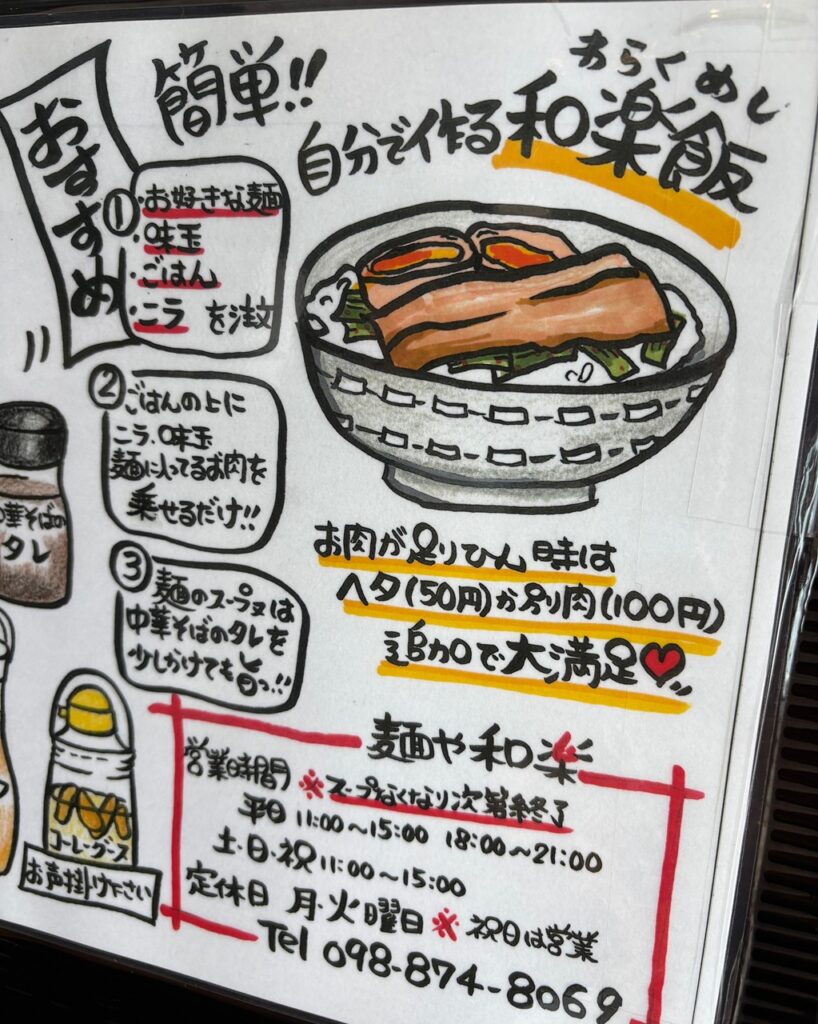 おすすめ
簡単!!
わらくめし
自分で作る和楽飯
①・お好きな麺
・味玉
・ごはん
・ニラ を注文
②ごはんの上に
ニラ・味玉
麺に入ってるお肉を
乗せるだけ!!
③麺のスープ又は
中華そばのタレを
少しかけても旨っ!!
中華そばの
タレ
お肉が足りひん時は
ヘタ(50円)か別肉(100円)
追加で大満足
コーレーグース
お声掛け下さい
麺や和楽
営業時間 ※スープなくなり次第終了
平日 11:00~15:00 18:00~21:00
土・日・祝 11:00~15:00
定休日 月・火曜日 ※祝日は営業
Tel 098-874-8069